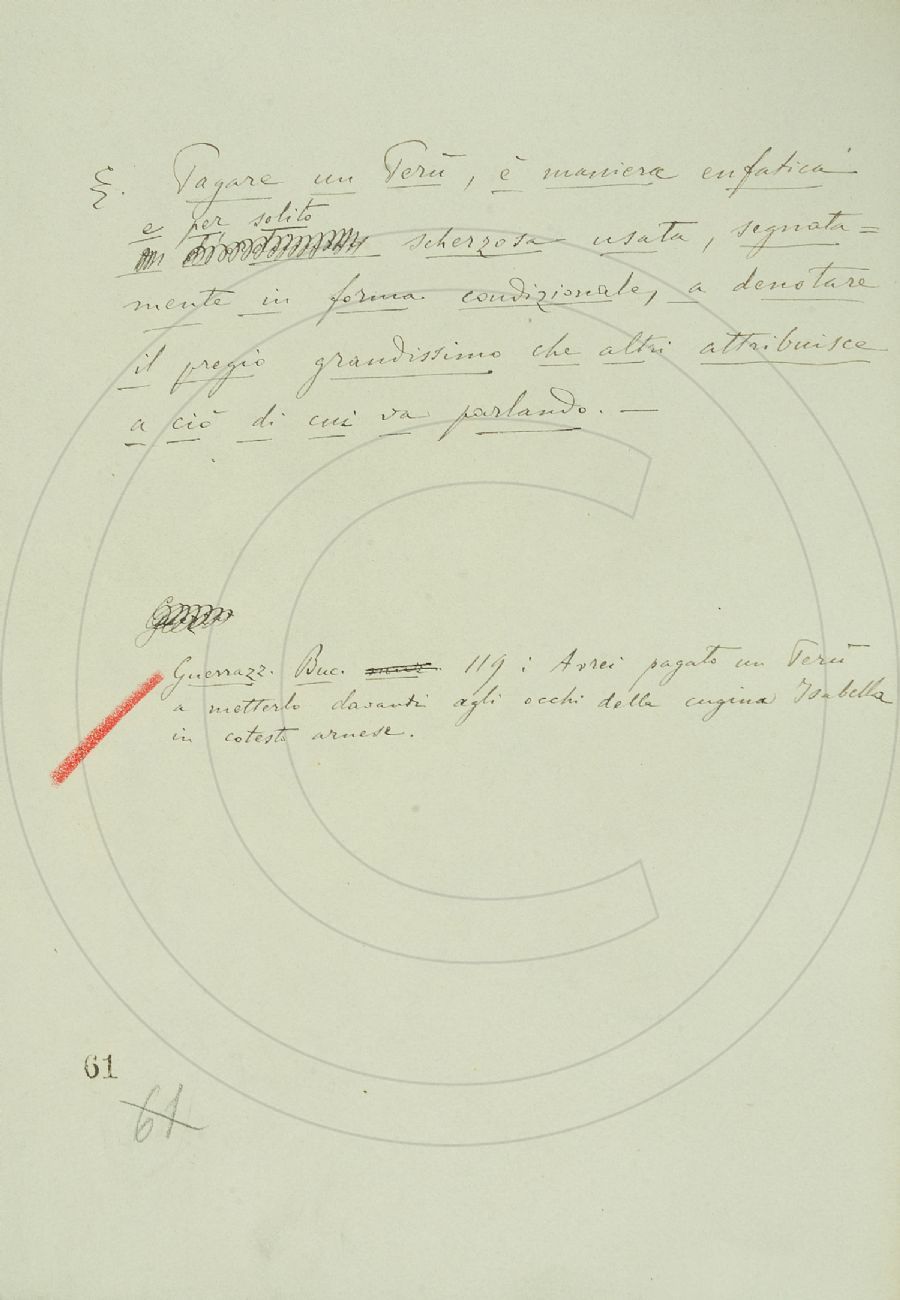 §. Pagare un Perù, è maniera enfatica
e per solito
scherzosa usata, segnata=
mente in forma condizionale, a denotare
il pregio grandissimo che altri attribuisce
a ciò di cui va parlando. —
Guerrazz. Buc. 119: Avrei pagato un Perù
a metterlo davanti agli occhi della cugina Isabella
in cotesto arnese.
61
61